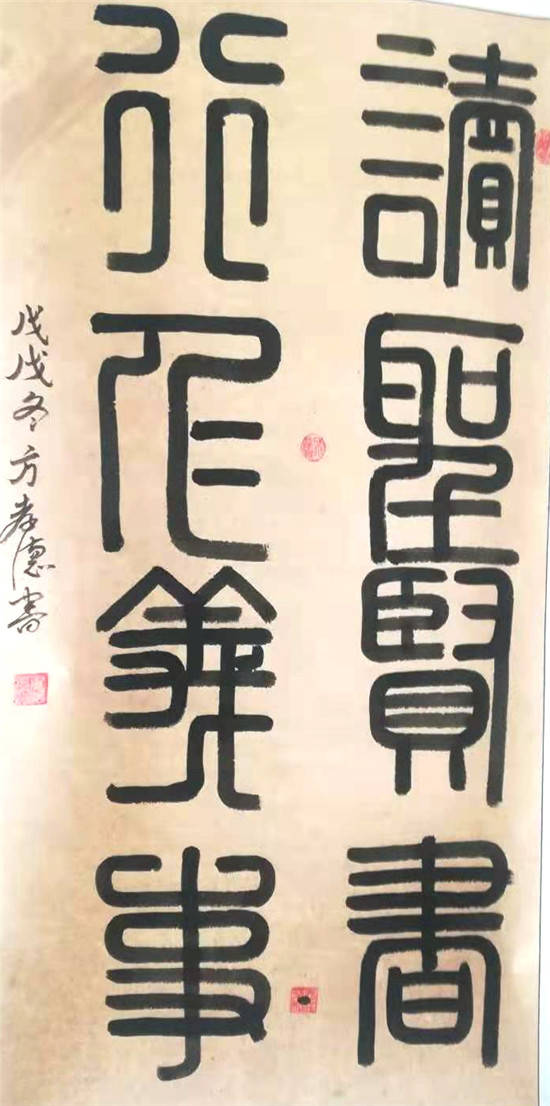 讀聖賢書
行仁義事
戊戌冬方孝德書